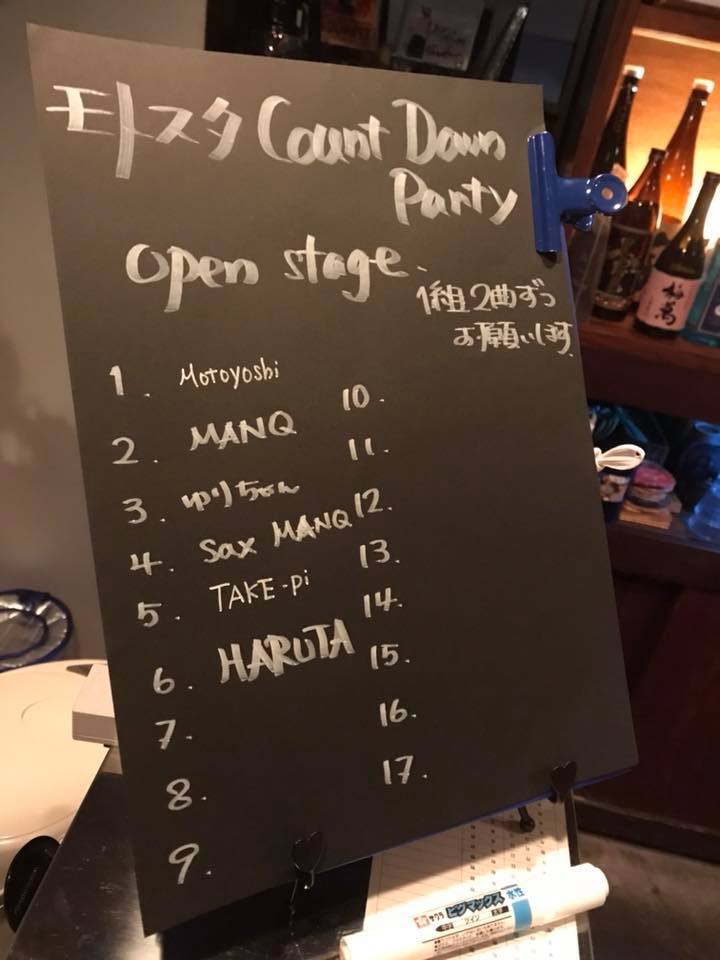 モトスタ Count Down
Party
open stage.
1組2曲ずつ
お願いします
1. Motoyoshi
2. MANQ
3. ゆりちゃん
4. Sax MANQ
5. TAKE-pi
6. HARUTA
7.
8.
9.
10.
11.
12.
13.
14.
15.
16.
17.
サクラ ピグマックス 水性
ツイン